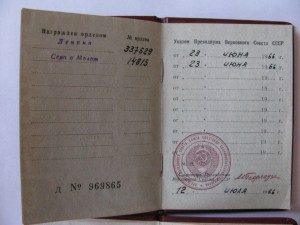 Награжден орденом № ордена
Ленина 337529
Серп и Молот 14815
Д № 969865
Указом Президиума Верховного Совета СССР
от „23 июня 1966 г.
от „23 июня 1966 г.
от „ 19 г.
от „ 19 г.
от „ 19 г.
от „ 19 г.
от „ 19 г.
М.П.
12 июля 1966 г.